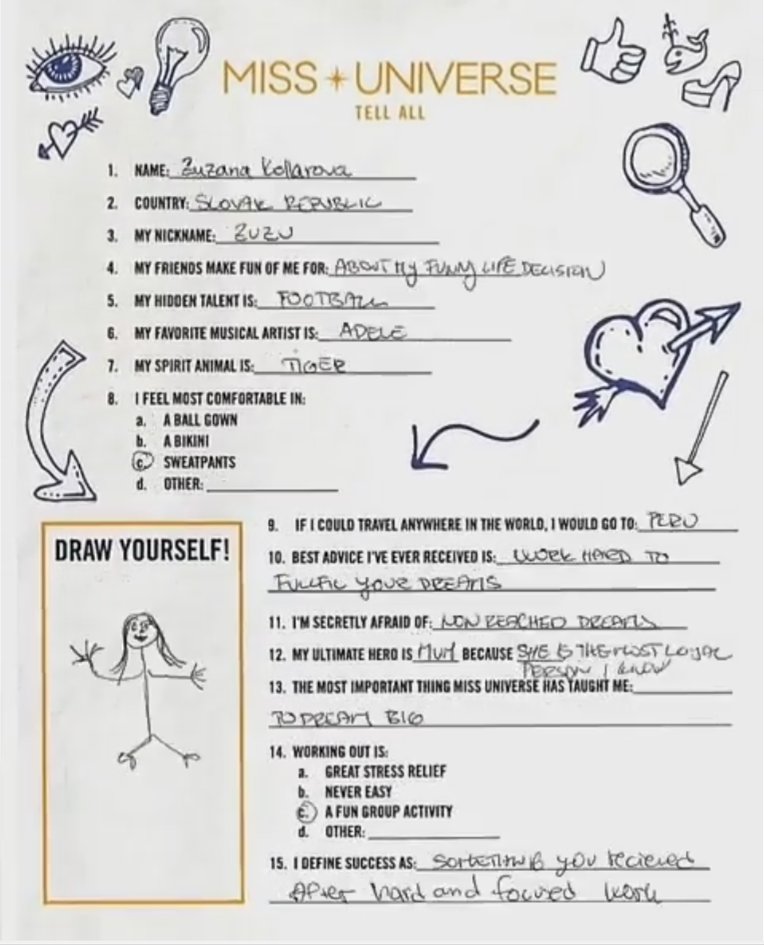 MISS UNIVERSE
TELL ALL
1. NAME: Zuzana Kollarova
2. COUNTRY: SLOVAK REPUBLIC
3. MY NICKNAME: ZUZU
4. MY FRIENDS MAKE FUN OF ME FOR: ABOUT MY FUNNY LIFE DECISION
5. MY HIDDEN TALENT IS: FOOTBALL
6. MY FAVORITE MUSICAL ARTIST IS: ADELE
7. MY SPIRIT ANIMAL IS: TIGER
8. I FEEL MOST COMFORTABLE IN:
a. A BALL GOWN
b. A BIKINI
c. SWEATPANTS
d. OTHER:
DRAW YOURSELF!
9. IF I COULD TRAVEL ANYWHERE IN THE WORLD, I WOULD GO TO: PERU
10. BEST ADVICE I'VE EVER RECEIVED IS: WORK HARD TO
FULLFIL YOUR DREAMS
11. I'M SECRETLY AFRAID OF: NON REACHED DREAMS
12. MY ULTIMATE HERO IS MUM BECAUSE SHE IS THE MOST LOYAL
PERSON I KNOW
13. THE MOST IMPORTANT THING MISS UNIVERSE HAS TAUGHT ME:
TO DREAM BIG
14. WORKING OUT IS:
a. GREAT STRESS RELIEF
b. NEVER EASY
c. A FUN GROUP ACTIVITY
d. OTHER:
15. I DEFINE SUCCESS AS: SOMETHING you recieved
After hard and focused work